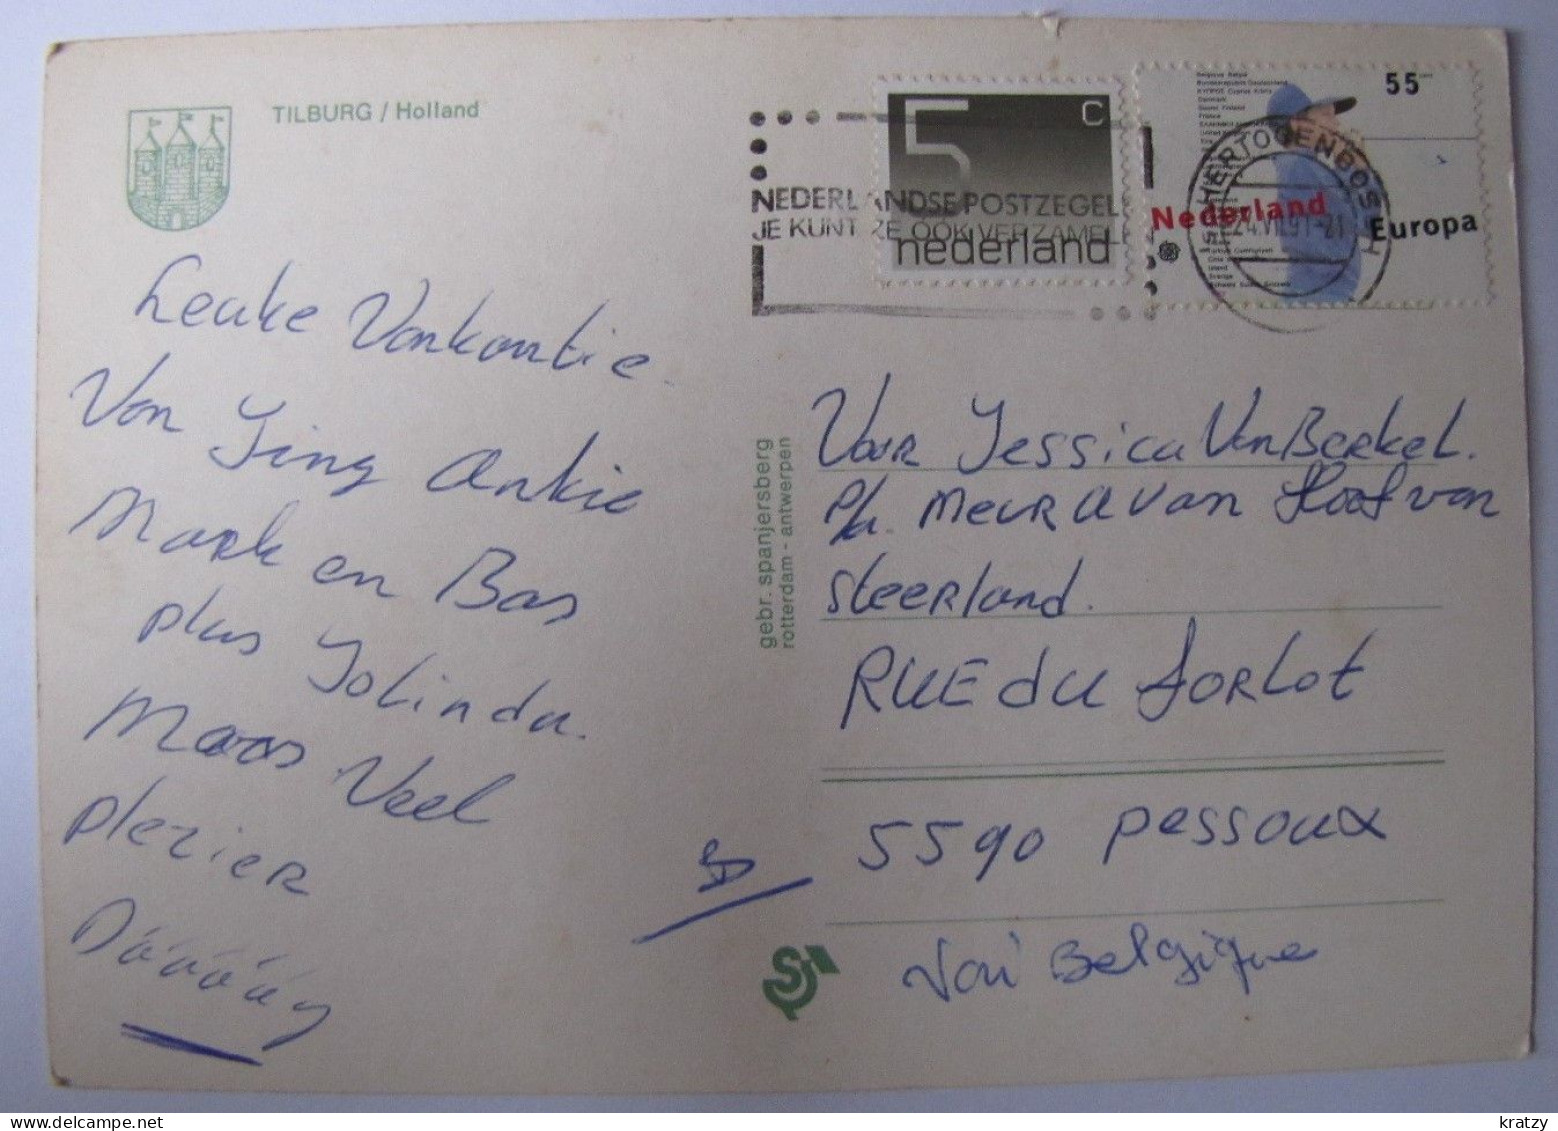 TILBURG / Holland
Leuke Vankantie
Van Jing Ankie
Mark en Bas
plus Jolinda
Maas Veel
plezier
Dááááág
gebr. spanjersberg
rotterdam - antwerpen
NEDERLANDSE POSTZEGEL
JE KUNT ZE OOK VERZAMEL
5 c
nederland
'S-HERTOGENBOSCH
24.VII.91-21
55 cent
Nederland
Europa
Voor Jessica Van Berkel.
P/a. Meur A Van Hoof van
steerland.
RUE du forlot
5590 pessoux
Belgique
kratzy